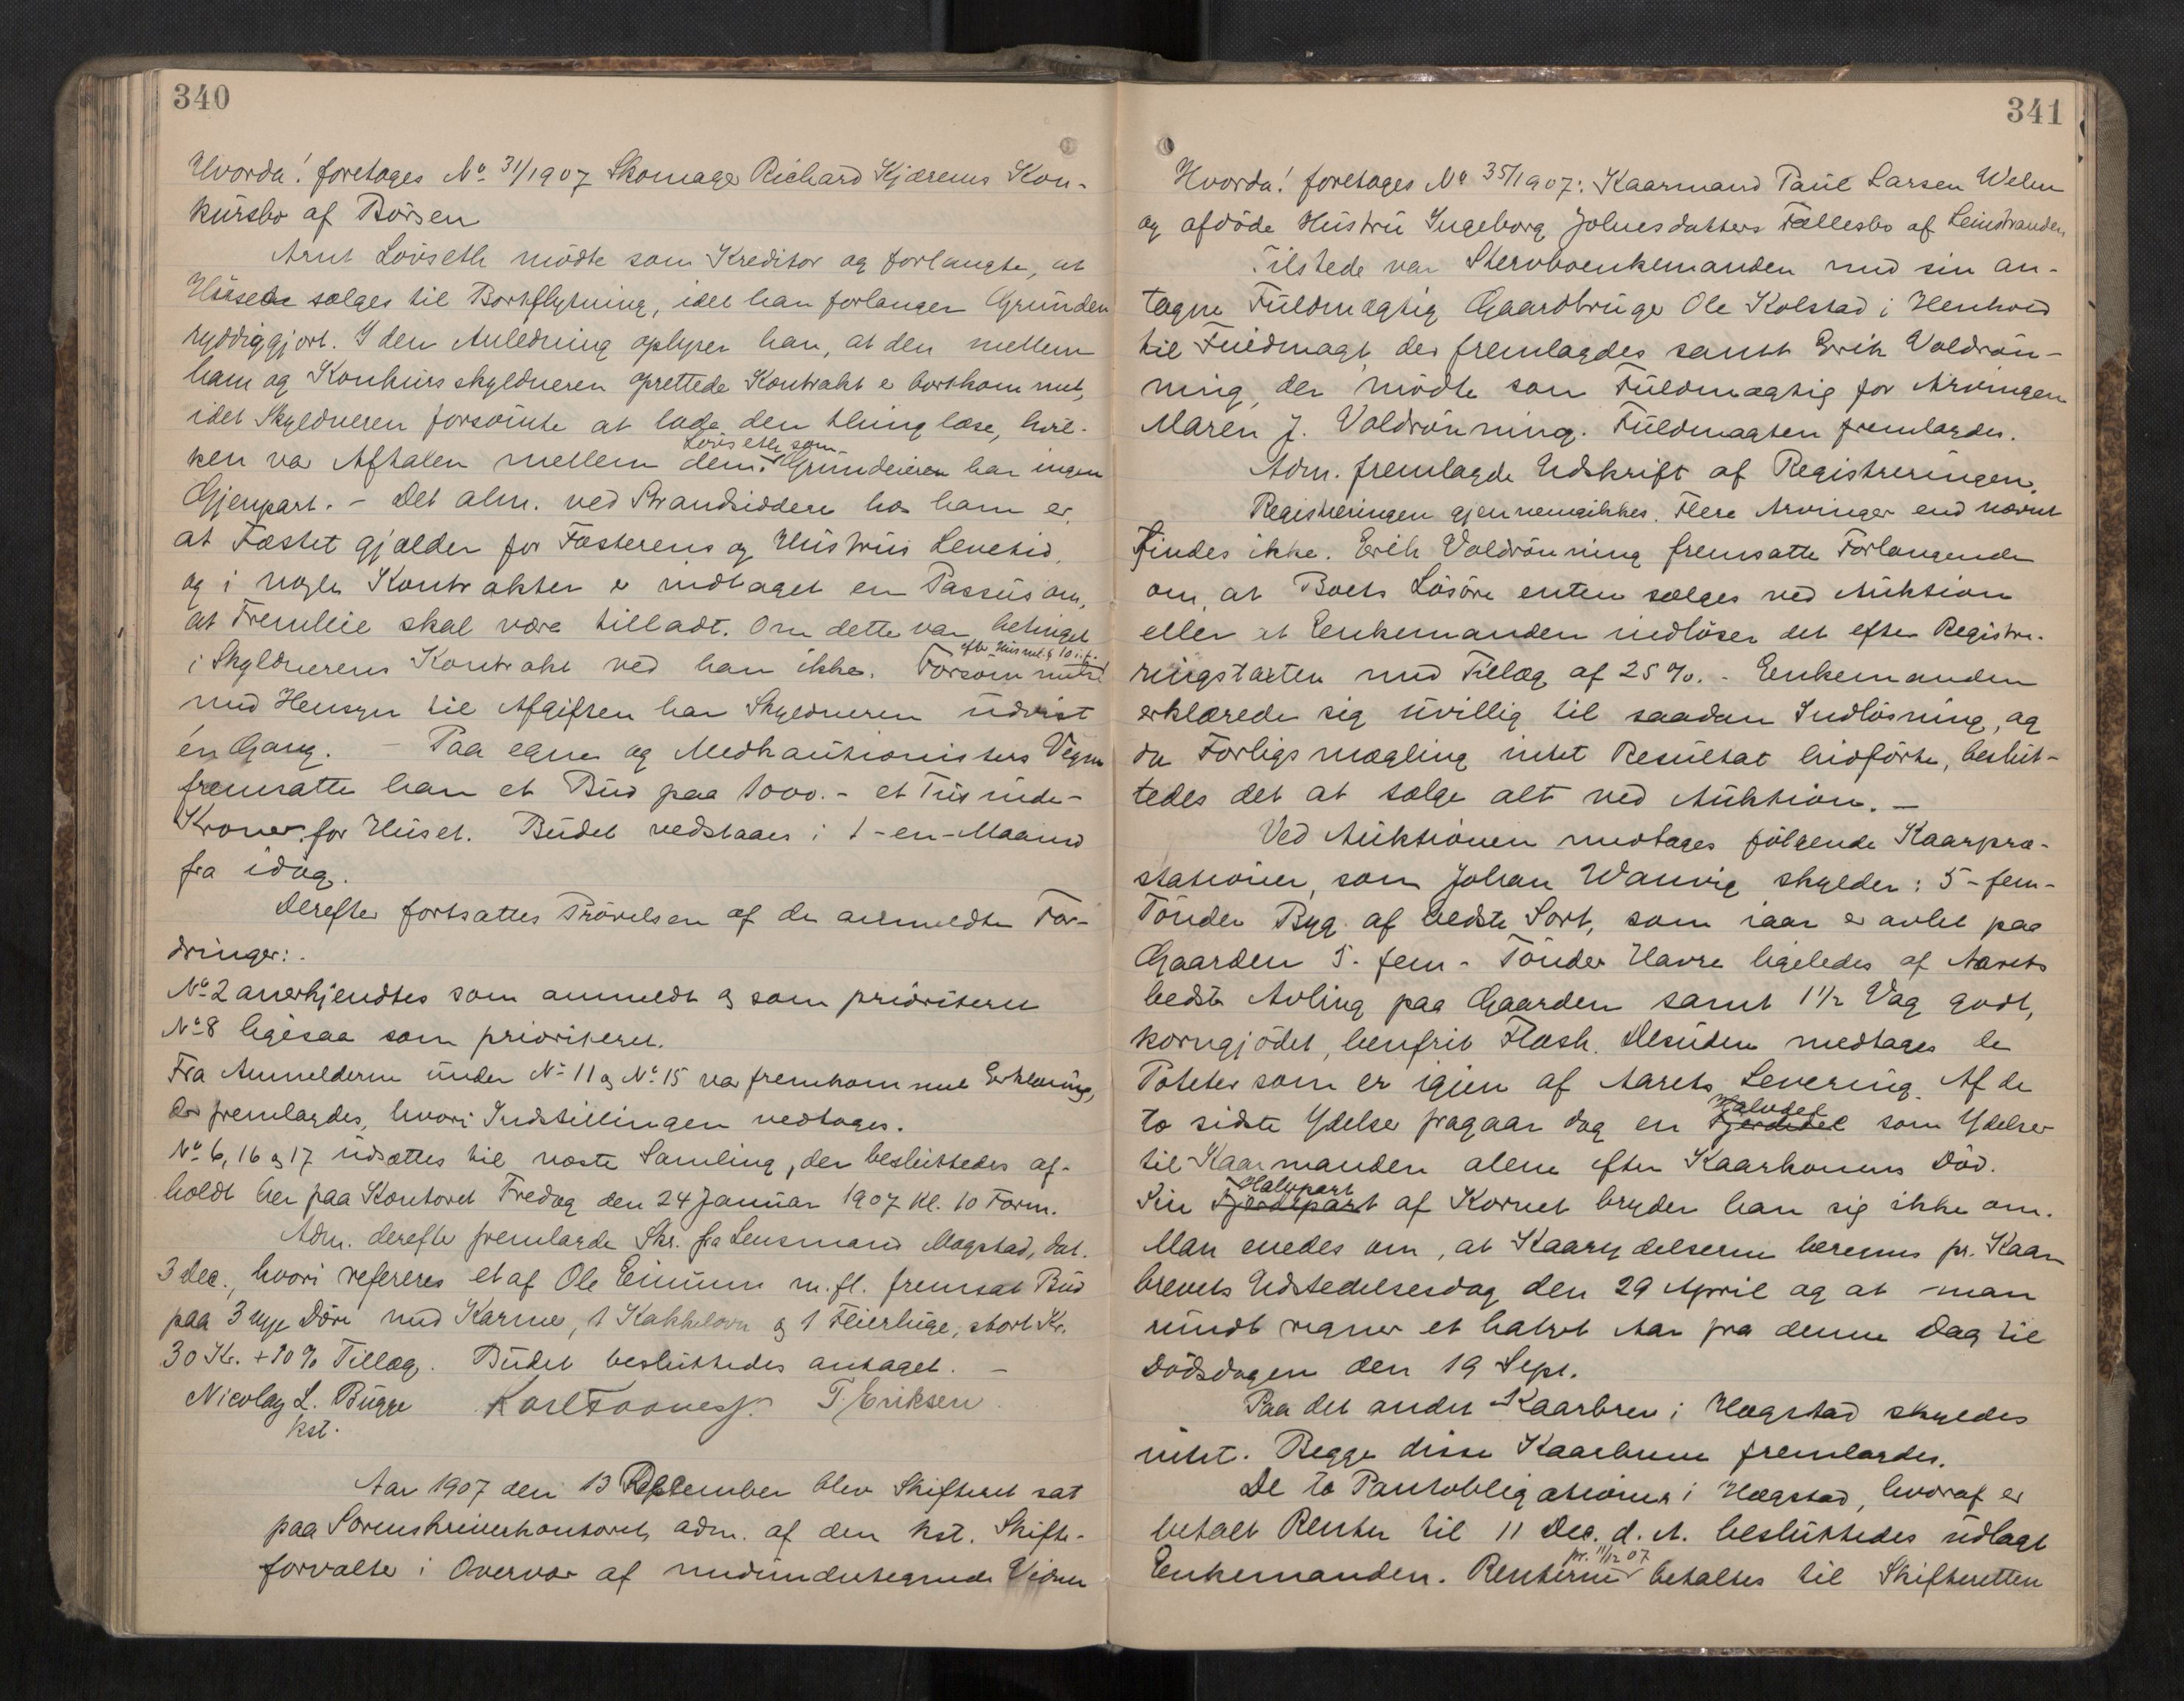 340
Hvorda! foretages No 31/1907 Skomager Richard Kjærems Kon-
kursbo af Börsen
Arnt Lövseth mödte som Kreditor og forlangte, at
Huset sælges til Bortflytning, idet han forlanger Grunden
ryddiggjort. I den Anledning oplyser han, at den mellem
ham og Konkursskyldneren oprettede Kontrakt er bortkommet,
idet Skyldneren forsömte at lade den thinglæse, hvil-
ken var Aftalen mellem dem. Lövseth som Grundeieren har ingen
Gjenpart. - Det alm. ved Strandsiddere hos ham er,
at Fæstet gjælder for Fæsterens og Hustrus Levetid,
og i nogle Kontrakter er indtaget en Passus om,
at Fremleie skal være tilladt. Om dette var betinget
i Skyldnerens Kontrakt ved han ikke. Forsömmelse efter Husml. § 10 i.f.
med Hensyn til Afgiften har Skyldneren udvist
én Gang. - Paa egne og Medkautionisters Vegne
fremsatte han et Bud paa 1000.- et Tusinde-
Kroner for Huset. Budet vedstaaes i 1-en-Maaned
fra idag.
Derefter fortsattes Prövelsen af de anmeldte For-
dringer:.
No 2 anerkjendtes som anmeldt og som prioriteret
No 8 ligesaa som prioriteret.
Fra Anmelderne under No 11 og No 15 var fremkommet Erklæring,
der fremlagdes, hvori Indstillingen vedtoges.
No 6, 16 og 17 udsættes til næste Samling, der besluttedes af-
holdt her paa Kontoret Fredag den 24 Januar 1907 Kl. 10 Form.
Adm. derefter fremlagde Skr. fra Lensmand Mogstad, dat.
3 dec., hvori refereres et af Ole Einum m. fl. fremsat Bud
paa 3 nye Döre med Karme, 1 Kakkelovn og 1 Feierluge, stort Kr.
30 Kr. + 10 % Tillæg. Budet besluttedes antaget. -
Nicolay L. Bugge T. Eriksen
kst.
Aar 1907 den 13 December blev Skifteret sat
paa Sorenskriverkontoret, adm. af den kst. Skifte-
forvalter i Overvær af medundertegnede Vidner
341
Hvorda! foretages No 35/1907: Kaarmand Paul Larsen Weken
og afdöde Hustru Ingeborg Johnsdatters Fællesbo af Leinstranden
Tilstede var Stervboenkemanden med sin an-
tagne Fuldmægtig Gaardbruger Ole Kolstad i Henhold
til Fuldmagt, der fremlagdes samt Erik Voldrön-
ning, der mödte som Fuldmægtig for Arvingen
Maren J. Voldrönning. Fuldmagten fremlagdes.
Adm. fremlagde Udskrift af Registreringen.
Registreringen gjennemgikkes. Flere Arvinger end nævnt
findes ikke. Erik Voldrönning fremsatte Forlangende
om, at Boets Lösöre enten sælges ved Auktion
eller at Enkemanden indlöser det efter Registre-
ringstaxten med Tillæg af 25 %. - Enkemanden
erklærede sig uvillig til saadan Indlösning, og
da Forligsmægling intet Resultat hidförte, beslut-
tedes det at sælge alt ved Auktion. -
Ved Auktionen medtages fölgende Kaarpræ-
stationer, som Johan Wanvig skylder: 5 - fem -
Tönder Byg af bedste Sort, som iaar er avlet paa
Gaarden 5 - fem - Tönder Havre ligeledes af Aarets
bedste Avling paa Gaarden samt 1 1/2 Vog godt,
korngjödet, benfrit Flæsk. Desuden medtages de
Poteter som er igjen af Aarets Levering. Af de
to sidste Ydelser fragaar dog en Fjerdedel Halvdel som Ydelser
til Kaarmanden alene efter Kaarkonens Död.
Sin Fjerdepart Halvpart af Kornet bryder han sig ikke om.
Man enedes om, at Kaarydelserne beregnes pr. Kaar-
brevets Udstedelsesdag den 29 April og at man
rundt regner et halvt Aar fra denne Dag til
Dödsdagen den 19 Sept.
Paa det andet Kaarbrev i Hegstad skyldes
intet. Begge disse Kaarbreve fremlagdes.
De to Pantobligationer i Hegstad, hvoraf er
betalt Renter til 11 Dec. d. A. besluttedes udlagt
Enkemanden. Renterne pr. 11/12 07 betaltes til Skifteretten